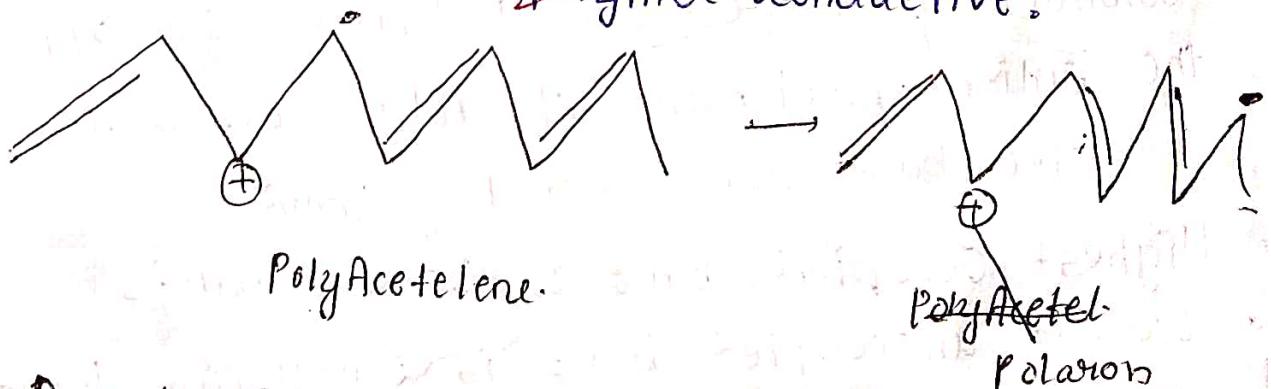 conductive.
⊕
⊕
PolyAcetelene.
PolyAcetel.
Polaron